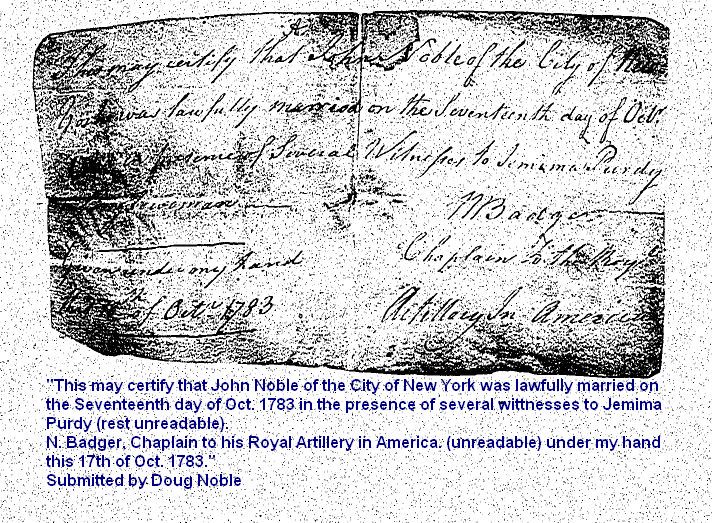 This may certify that John Noble of the City of New
York was lawfully married on the Seventeenth day of Octr.
in presence of Several Witnesses to Jemima Purdy
Badger
Given under my hand
Chaplain to the Royl
of Octr 1783
Artillery In America
"This may certify that John Noble of the City of New York was lawfully married on
the Seventeenth day of Oct. 1783 in the presence of several wittnesses to Jemima
Purdy (rest unreadable).
N. Badger, Chaplain to his Royal Artillery in America. (unreadable) under my hand
this 17th of Oct. 1783."
Submitted by Doug Noble